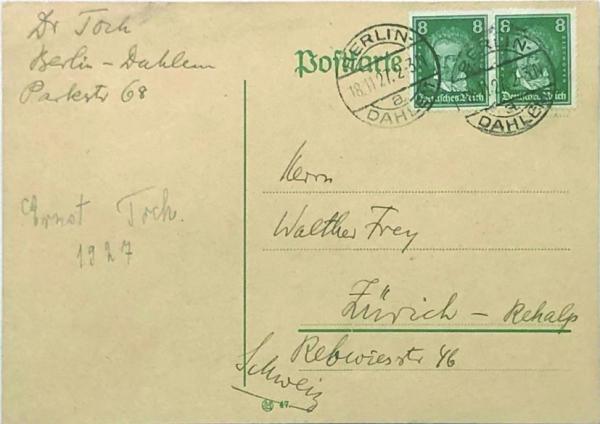 Dr Toch
Berlin - Dahlem
Parkstr 68
Postkarte
8 8
Deutsches Reich Deutsches Reich
BERLIN-
18.11.27.2-3
a
DAHLEM
BERLIN-
a
DAHLEM
Ernst Toch.
1927
Herrn
Walther Frey
Zürich - Rehalp
Rebwiesstr 46
Schweiz
47